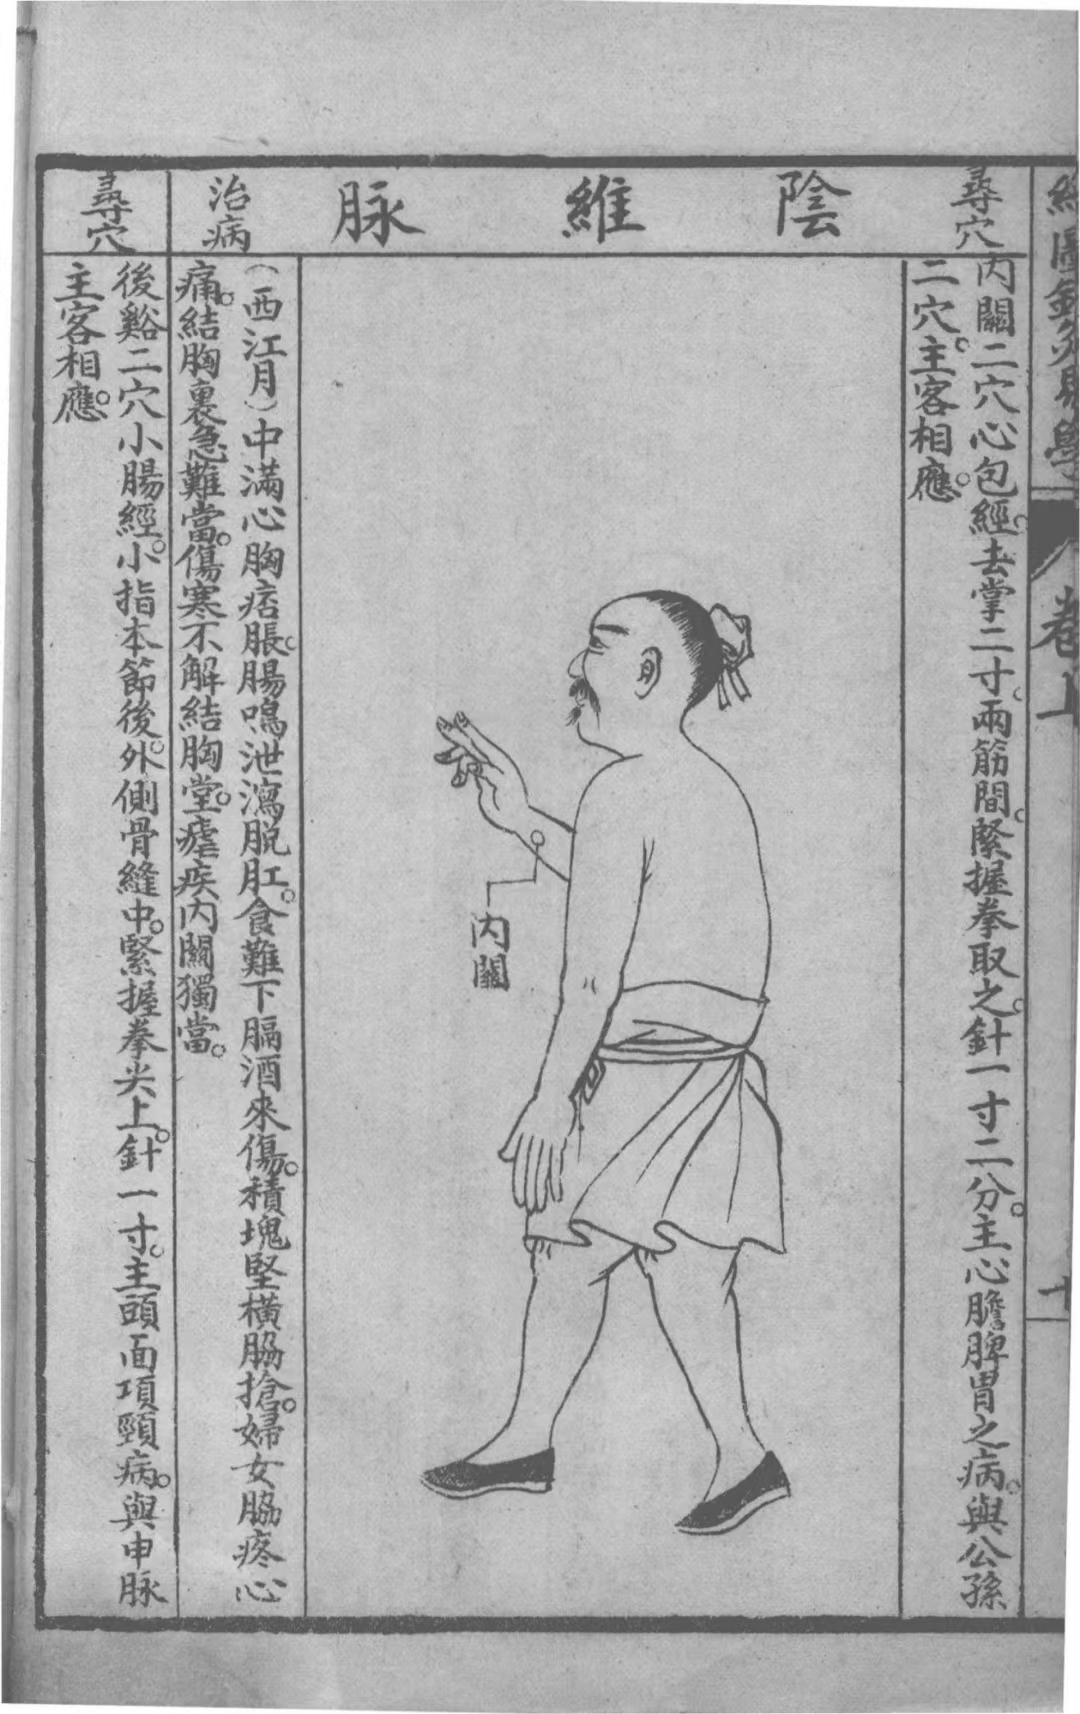 繪圖針灸易學
卷上
尋穴
內關二穴心包經。去掌二寸。兩筋間。緊握拳取之。針一寸二分。主心膽脾胃之病。與公孫
二穴。主客相應。
陰維脉
內關
治病
（西江月）中滿心胸痞脹。腸鳴泄瀉脫肛。食難下膈酒來傷。積塊堅橫脇搶。婦女脇疼心
痛。結胸裏急難當。傷寒不解結胸堂。瘧疾內關獨當。
尋穴
後谿二穴小腸經。小指本節後。外側骨縫中。緊握拳尖上。針一寸。主頭面項頸病。與申脉
主客相應。